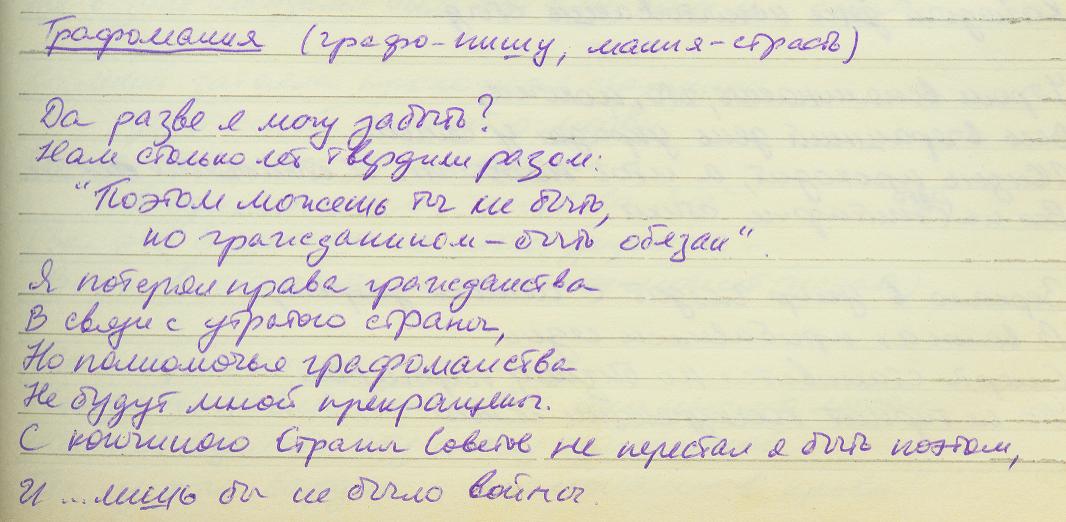 Графомания (графо-пишу, мания-страсть)
Да разве я могу забыть?
Нам столько лет твердили разом:
"Поэтом можешь ты не быть,
но гражданином - быть обязан".
Я потерял права гражданства
В связи с утратою страны,
Но полномочья графоманства
Не будут мной прекращены.
С кончиною Страны Советов не перестал я быть поэтом,
И ... лишь бы не было войны.